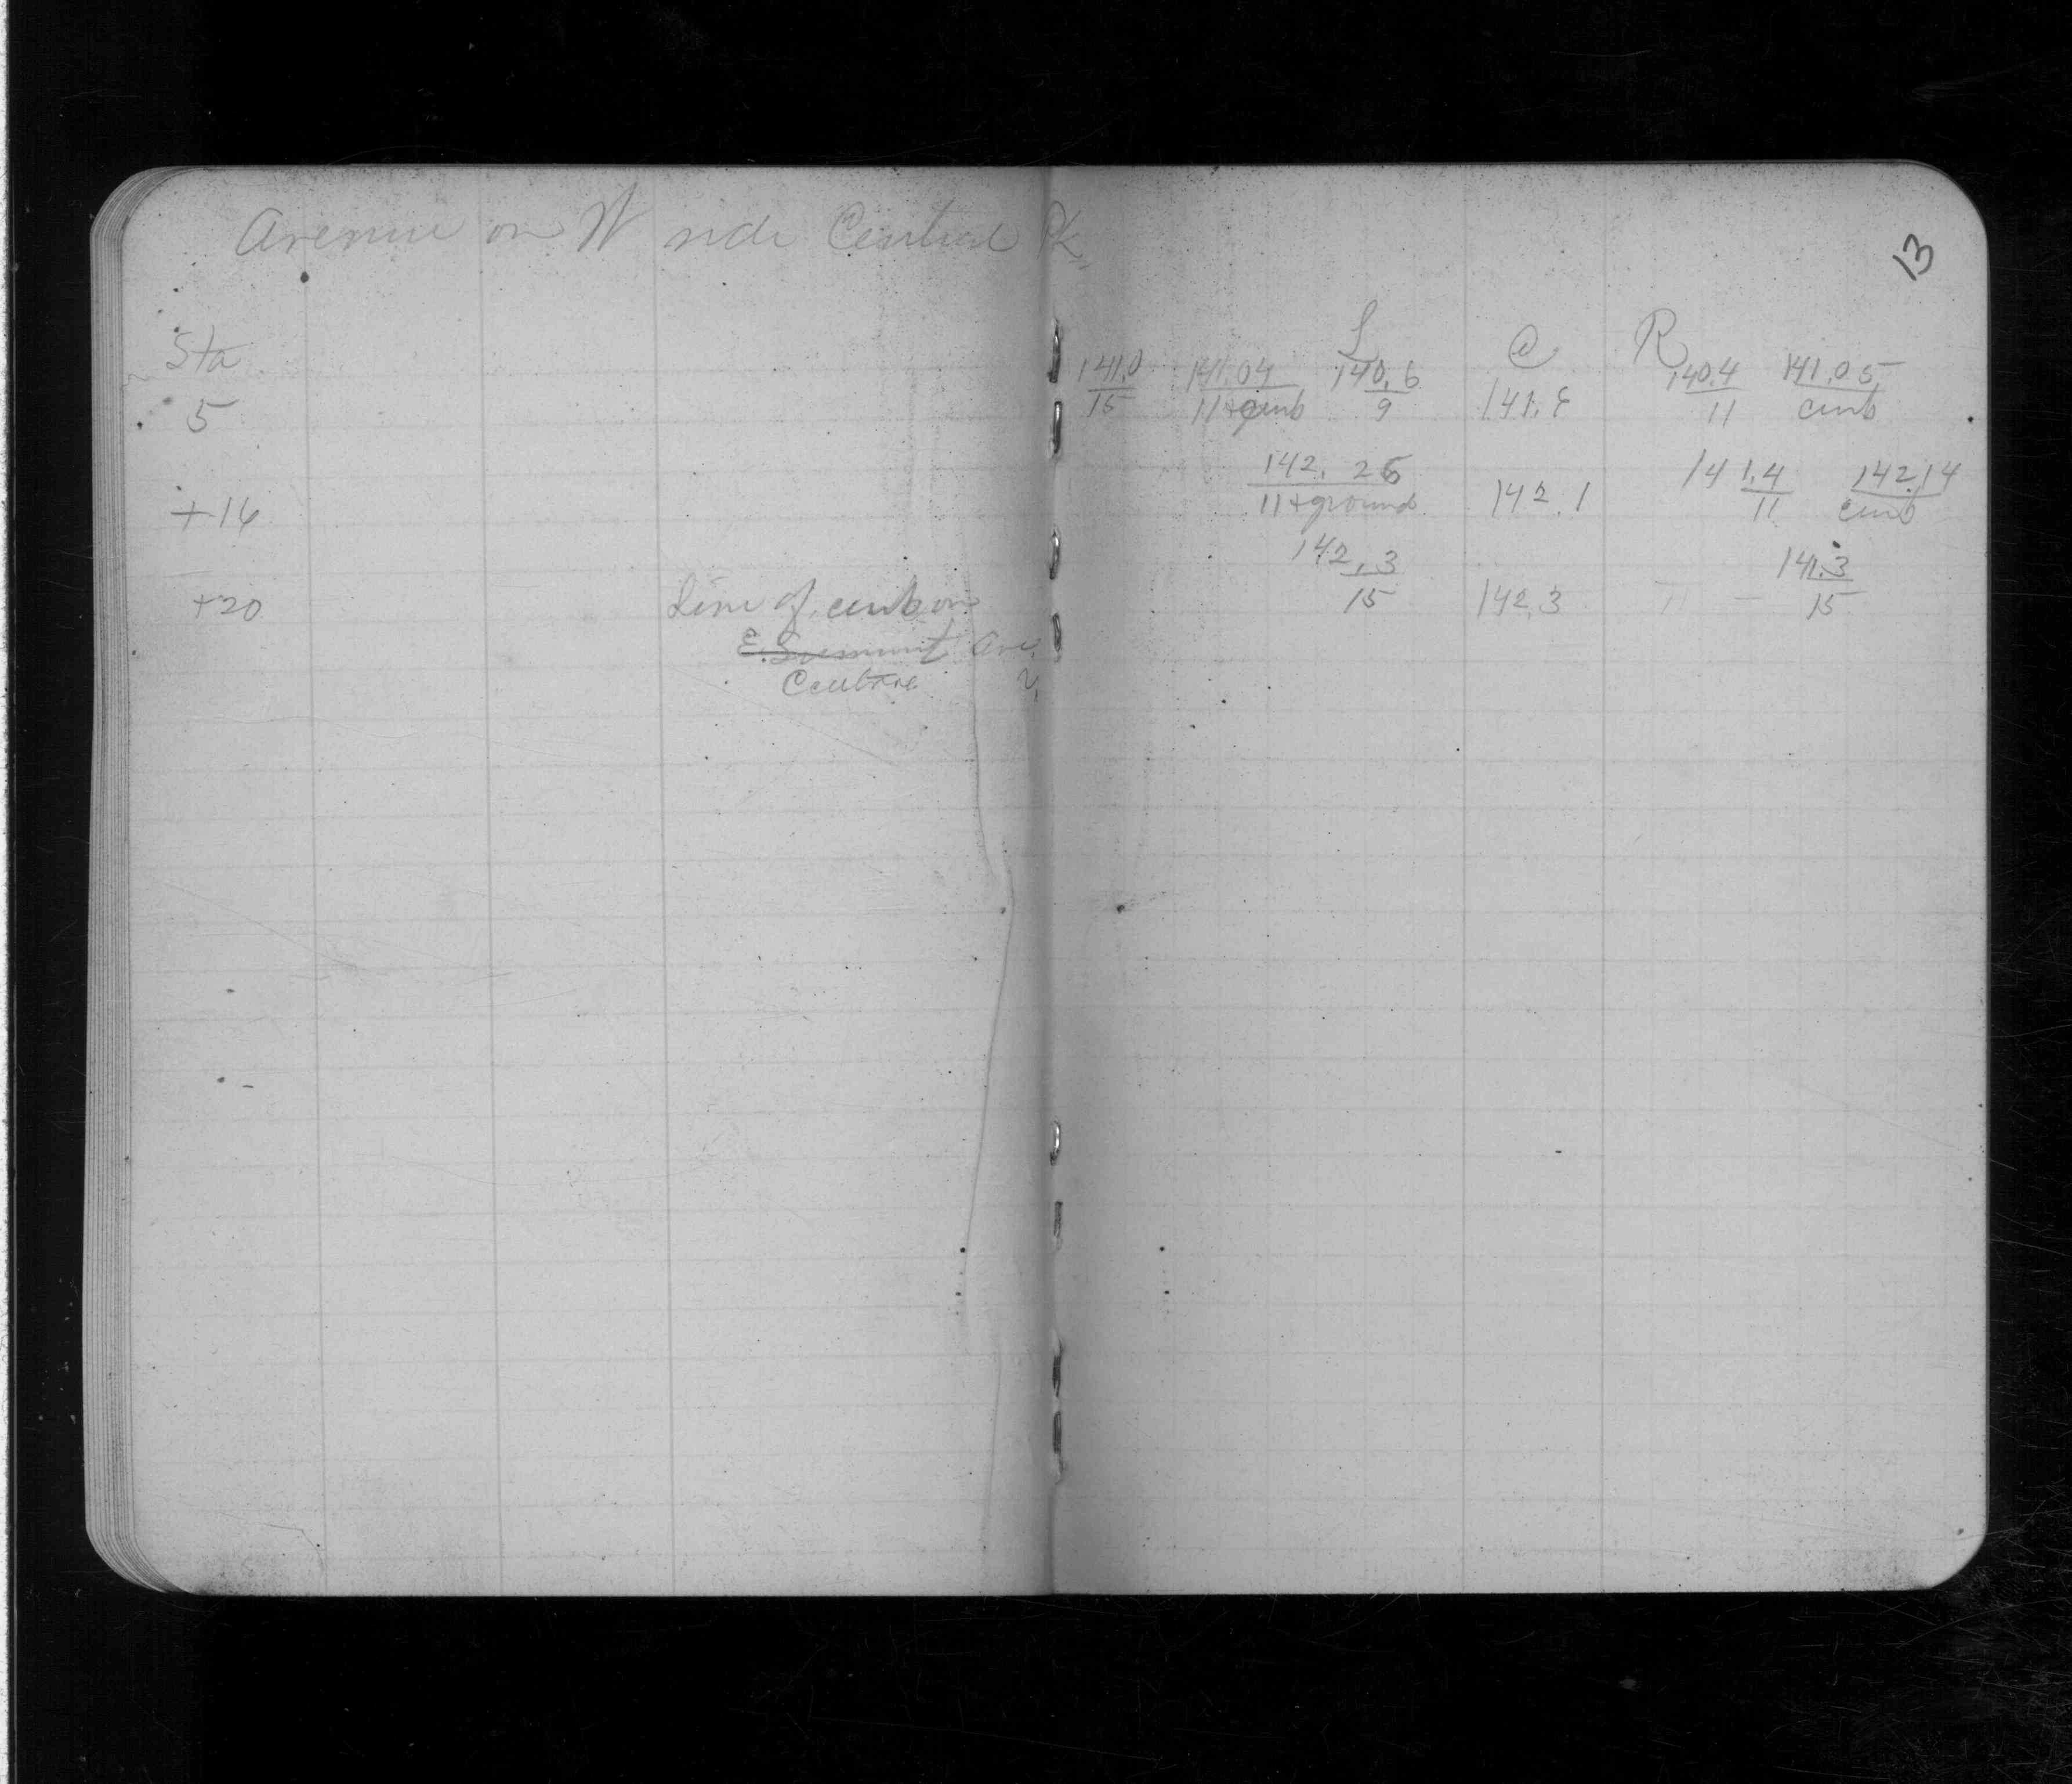 Avenue on W side Central Pk.
13
Sta L C R
5 141.0/15 141.04/11+curb 140.6/9 141.8 140.4/11 141.05/curb
+16 142.26/11+ground 142.1 141.4/11 142.14/curb
+20 Line of curb on 142.3/15 142.3 141.3/15
Ave.
Centre